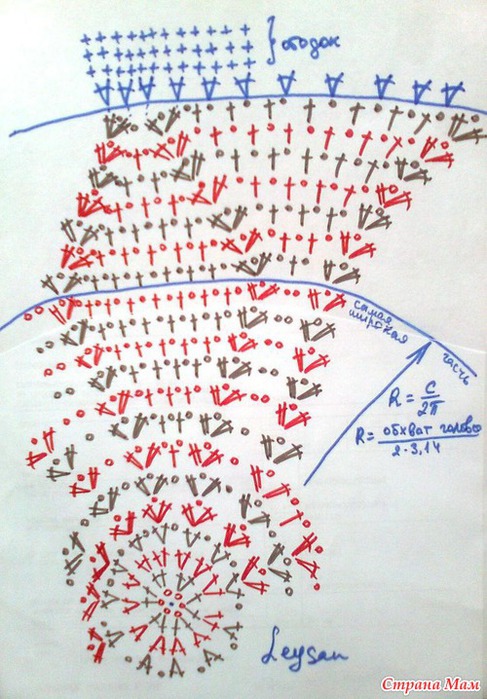 ободок
самая
широкая
часть
R = C
2π
R = обхват головы
2·3,14
Leysan
Страна Мам